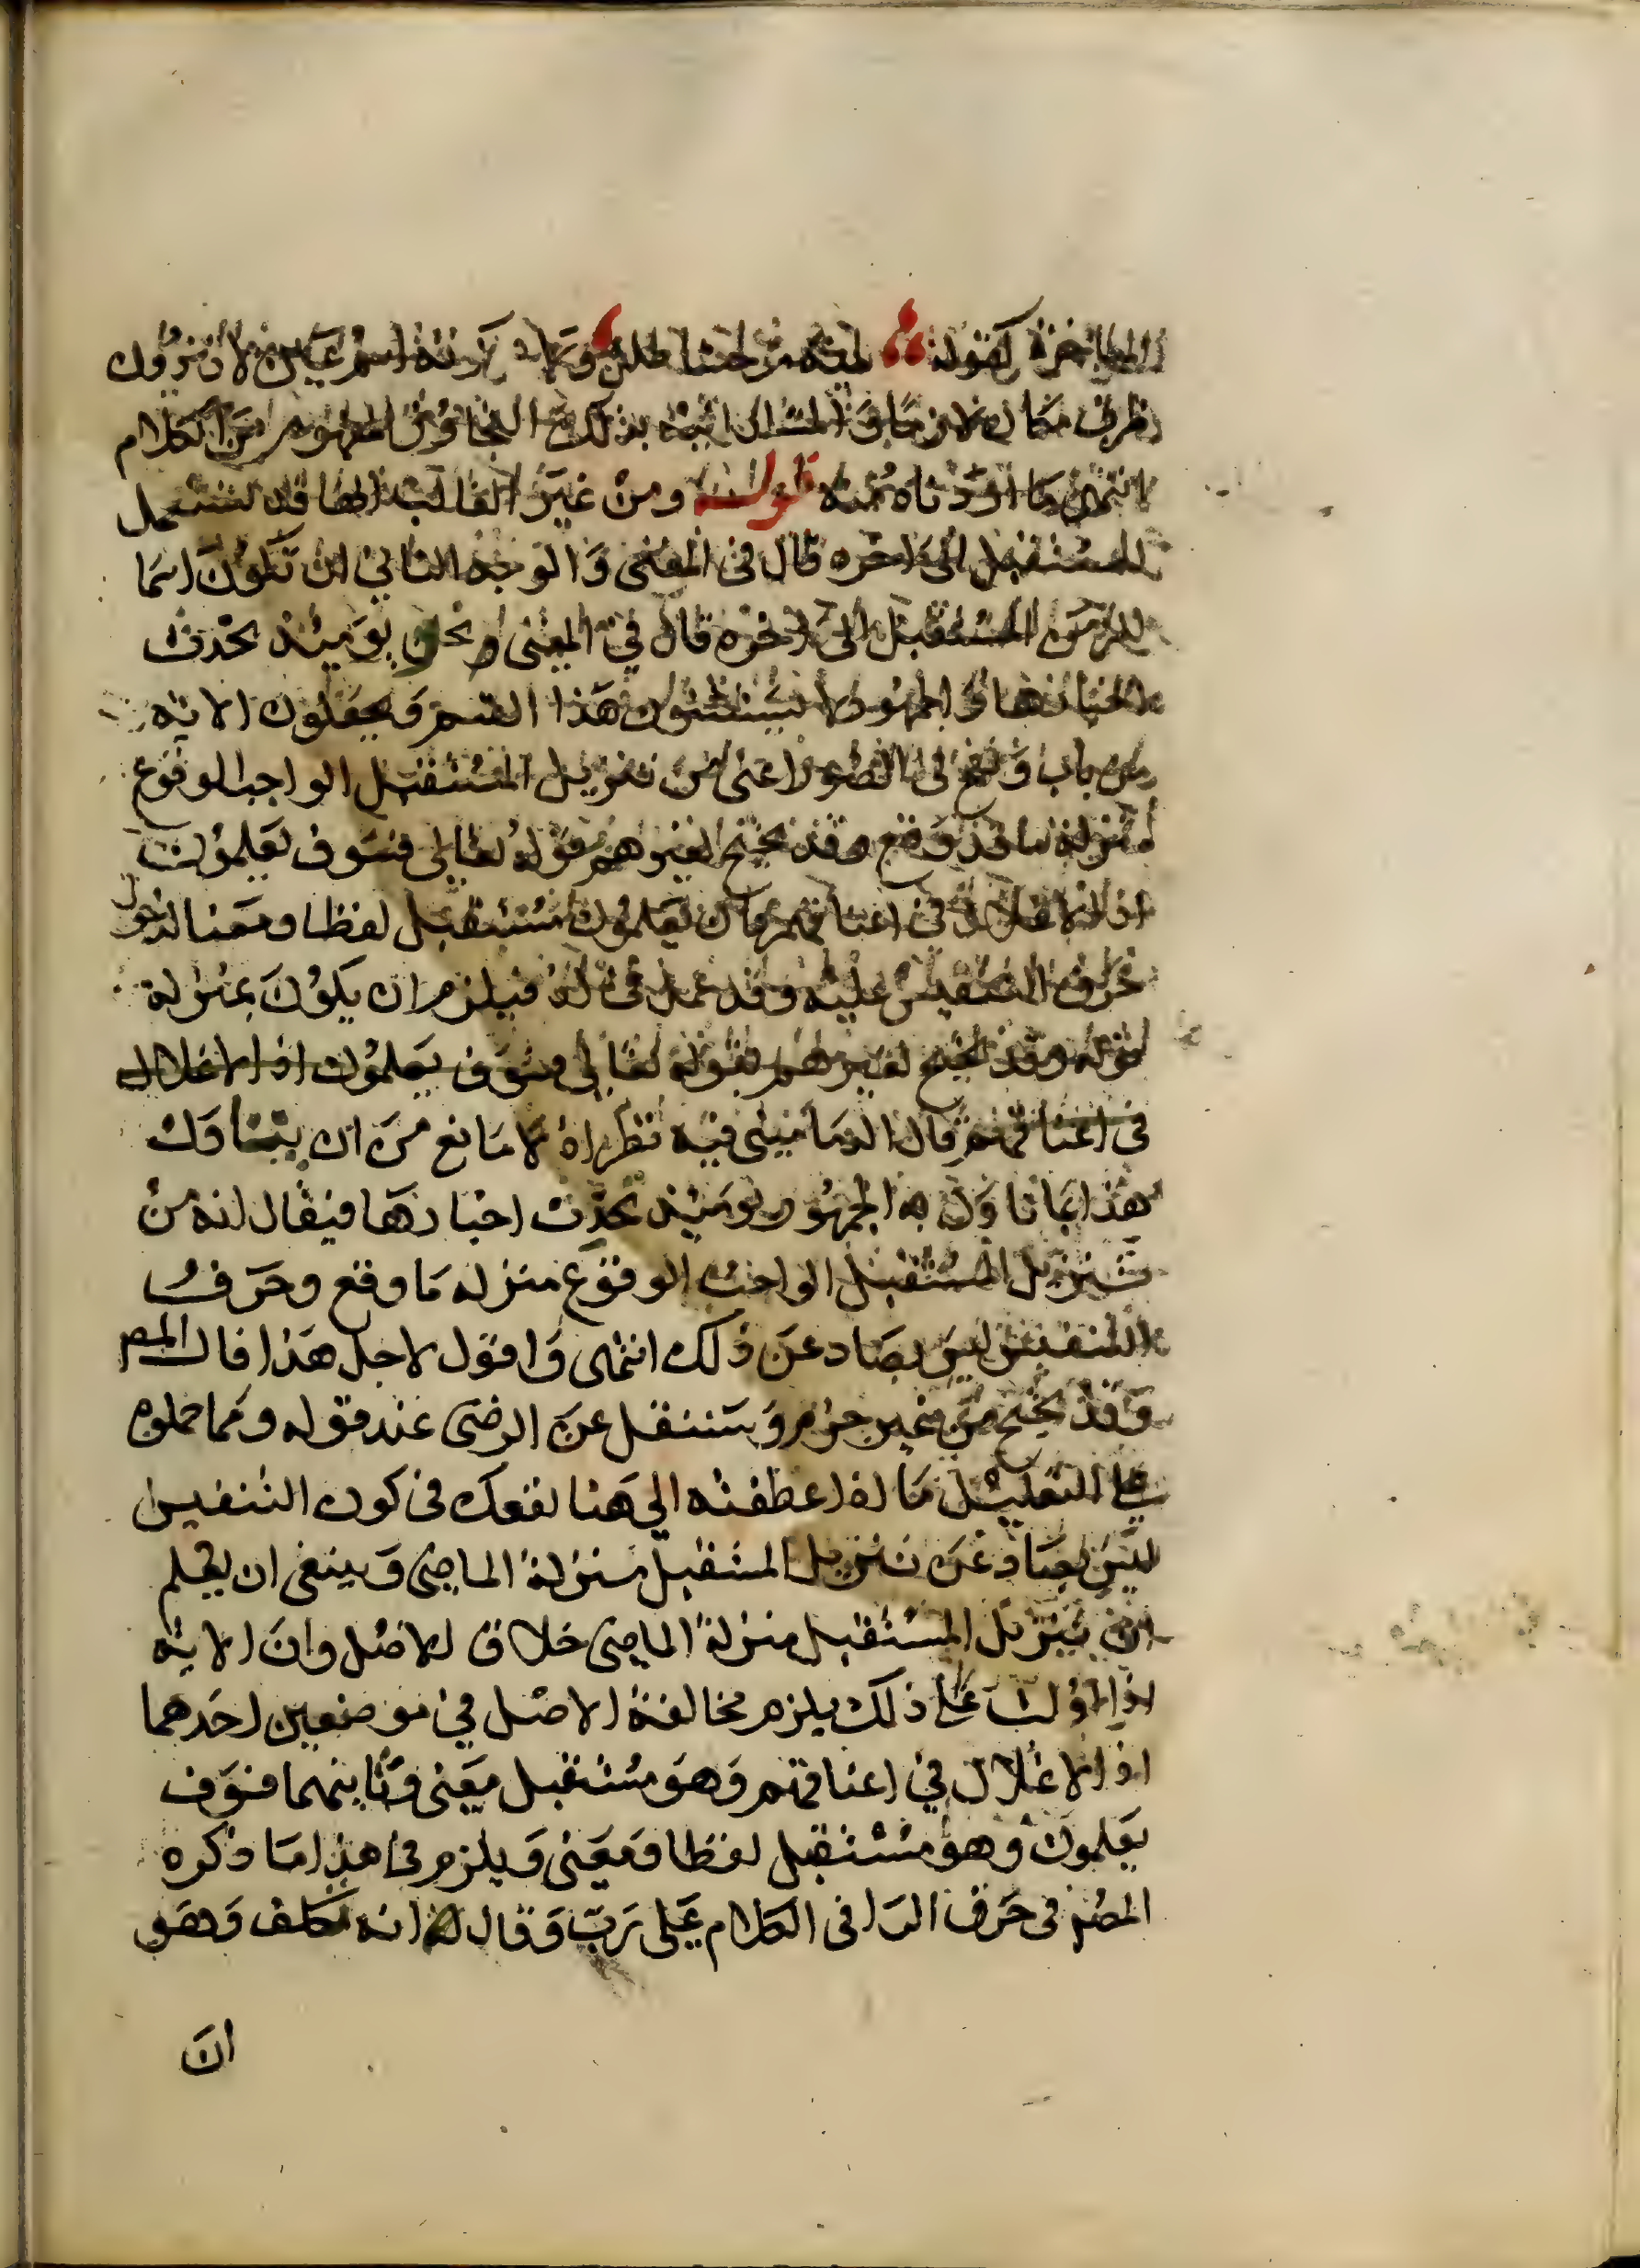 كقوله لمية موحشا طلل
ظرف مكان لا زمان المثال اثبته بذلك المفهوم من الكلام
انتهى ما اردناه منه قوله ومن غير الغالب انها قد تستعمل
للمستقبل الى اخره قال فى المغنى وَالوجه الثاني ان تكون اسما
للزمن المستقبل الى اخره قال في المغنى نحو يومئذ تحدث
اخبارها والجمهور لا يثبتون هَذا القسم وَيجعلون الاية
من باب وَنفخ فى الصور اعنى من تنزيل المستقبل الواجب الوقوع
منزلة ما قد وَقع وقد يحتج لغيرهم بقوله تعالى فسَوف يَعلمون
اذ الاغلال فى اعناقهم فان يعلمون مستقبل لفظا ومعنا لدخول
حرف التنفيس عليه وقد عمل فى اذ فيلزم ان يكون بمنزلة
قوله وقد يحتج لغيرهم بقوله تعالى فسوف يعلمون اذ الاغلال
فى اعناقهم قال الدمامينى فيه نظر اذ لا مانع من ان يتناول
هذا بما تاول به الجمهور يومئذ تحدث اخبارهَا فيقال انه من
تنزيل المستقبل الواجب الوقوع منزله مَا وقع وحَرف
التنفيس ليس بصاد عن ذلك انتهى وَاقول لاجل هَذا قال المص
وَقد يحتج من غير جزم وَستنقل عن الرضى عند قوله ومما حملوه
على التعليل مَا لو عطفته الي هَنا نفعك فى كون التنفيس
ليسَ بصاد عن تنزيل المستقبل منزلة الماضى وَينبغى ان يعلم
ان تنزيل المستقبل منزلة الماضى خلاف الاصل وان الاية
اذا اولت على ذلك يلزم مخالفة الاصل في موضعين احَدهما
اذ الاغلال في اعناقهم وَهوَ مستقبل معنى وَثانيهما فسوَف
يعلمون وهو مستقبل لفظا وَمعنى وَيلزم فى هذا مَا ذكره
المصنف فى حَرف الرا فى الكلام على رَبّ وَقال انه تكلف وَهو
انَ